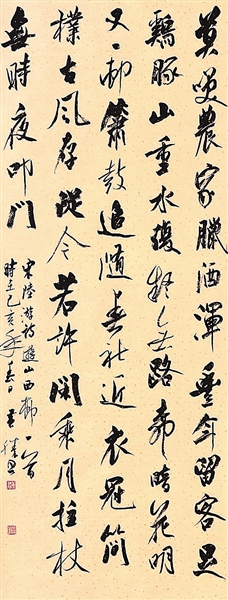 莫笑農家臘酒渾豐年留客足
鷄豚山重水複疑無路柳暗花明
又一邨簫鼓追隨春社近衣冠簡
樸古風存從今若許閑乘月拄杖
無時夜叩門
宋陸游詩遊山西邨一首
時在己亥年春日